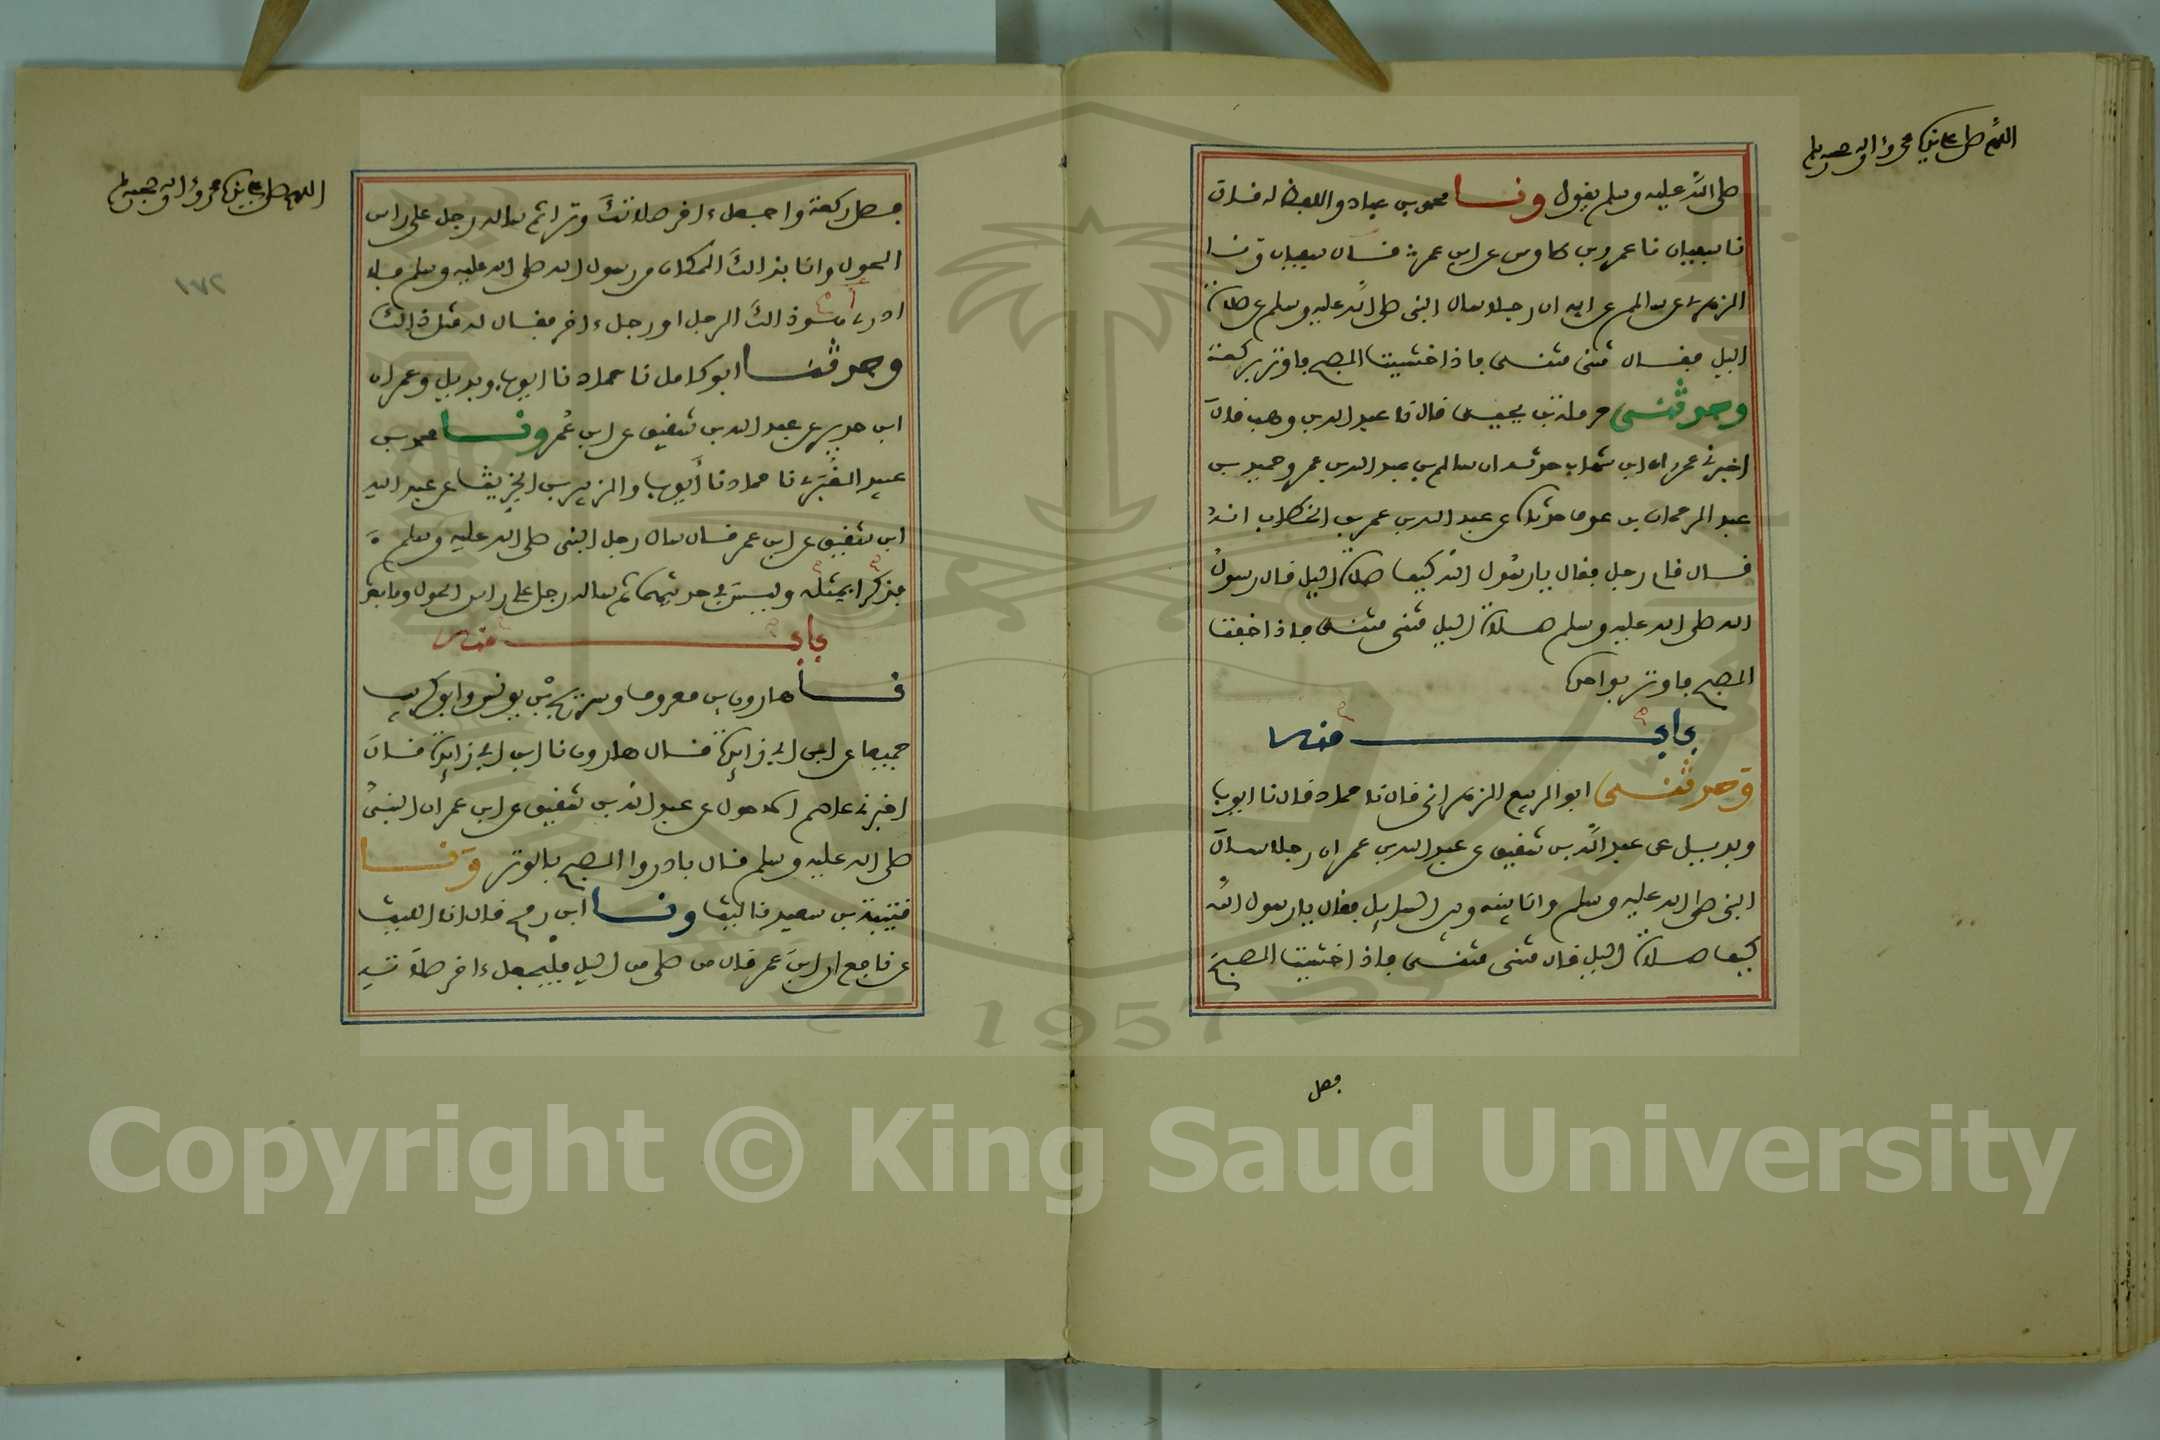 اللهم صل على نبينا محمد وءاله وصحبه وسلم
صلى الله عليه وسلم يقول ونا محمد بن عباد واللفظ له قال
نا سفيان نا عمرو بن طاوس عن ابن عمر قال سفيان ونا
الزهري عن سالم عن ابيه ان رجلا سال النبي صلى الله عليه وسلم عن صلاة
اليل فقال مثنى مثنى فاذا خشيت الصبح فاوتر بركعة
وحدثنى حرملة بن يحيى قال نا عبد الله بن وهب قال
اخبرني عمرو ان ابن شهاب حدثه ان سالم بن عبد الله بن عمر وحميد بن
عبد الرحمان بن عوف حدثاه عن عبد الله بن عمر بن الخطاب انه
قال قام رجل فقال يارسول الله كيف صلاة اليل قال رسول
الله صلى الله عليه وسلم صلاة اليل مثنى مثنى فاذا خفت
الصبح فاوتر بواحدة
باب منه
وحدثنى ابو الربيع الزهراني قال نا حماد قال نا ايوب
وبديل عن عبد الله بن شقيق عن عبد الله بن عمر ان رجلا سال
النبي صلى الله عليه وسلم وانا بينه وبين السايل فقال يارسول الله
كيف صلاة اليل قال مثنى مثنى فاذا خشيت الصبح
فصل
اللهم صل على نبينا محمد وءاله وصحبه وسلم
١٧٢
فصل ركعة واجعل ءاخر صلاتك وترا ثم ساله رجل على راس
الحول وانا بذلك المكان من رسول الله صلى الله عليه وسلم فلا
ادري هو ذلك الرجل او رجل ءاخر فقال له مثل ذلك
وحدثنا ابو كامل نا حماد نا ايوب وبديل وعمران
ابن حدير عن عبد الله بن شقيق عن ابن عمر ونا محمد بن
عبيد الغبري نا حماد نا ايوب والزبير بن الخريت عن عبد الله
ابن شقيق عن ابن عمر قال سال رجل النبي صلى الله عليه وسلم
فذكرا بمثله وليس في حديثهما ثم ساله رجل على راس الحول وما بعد
باب منه
نا هارون بن معروف وسريج بن يونس وابو كريب
جميعا عن ابن ابي زايدة قال هارون نا ابن ابي زايدة قال
اخبرني عاصم الاحول عن عبد الله بن شقيق عن ابن عمر ان النبي
صلى الله عليه وسلم قال بادروا الصبح بالوتر ونا
قتيبة بن سعيد نا ليث ونا ابن رمح قال انا الليث
عن نافع ان ابن عمر قال من صلى من اليل فليجعل ءاخر صلاته
1957
Copyright © King Saud University